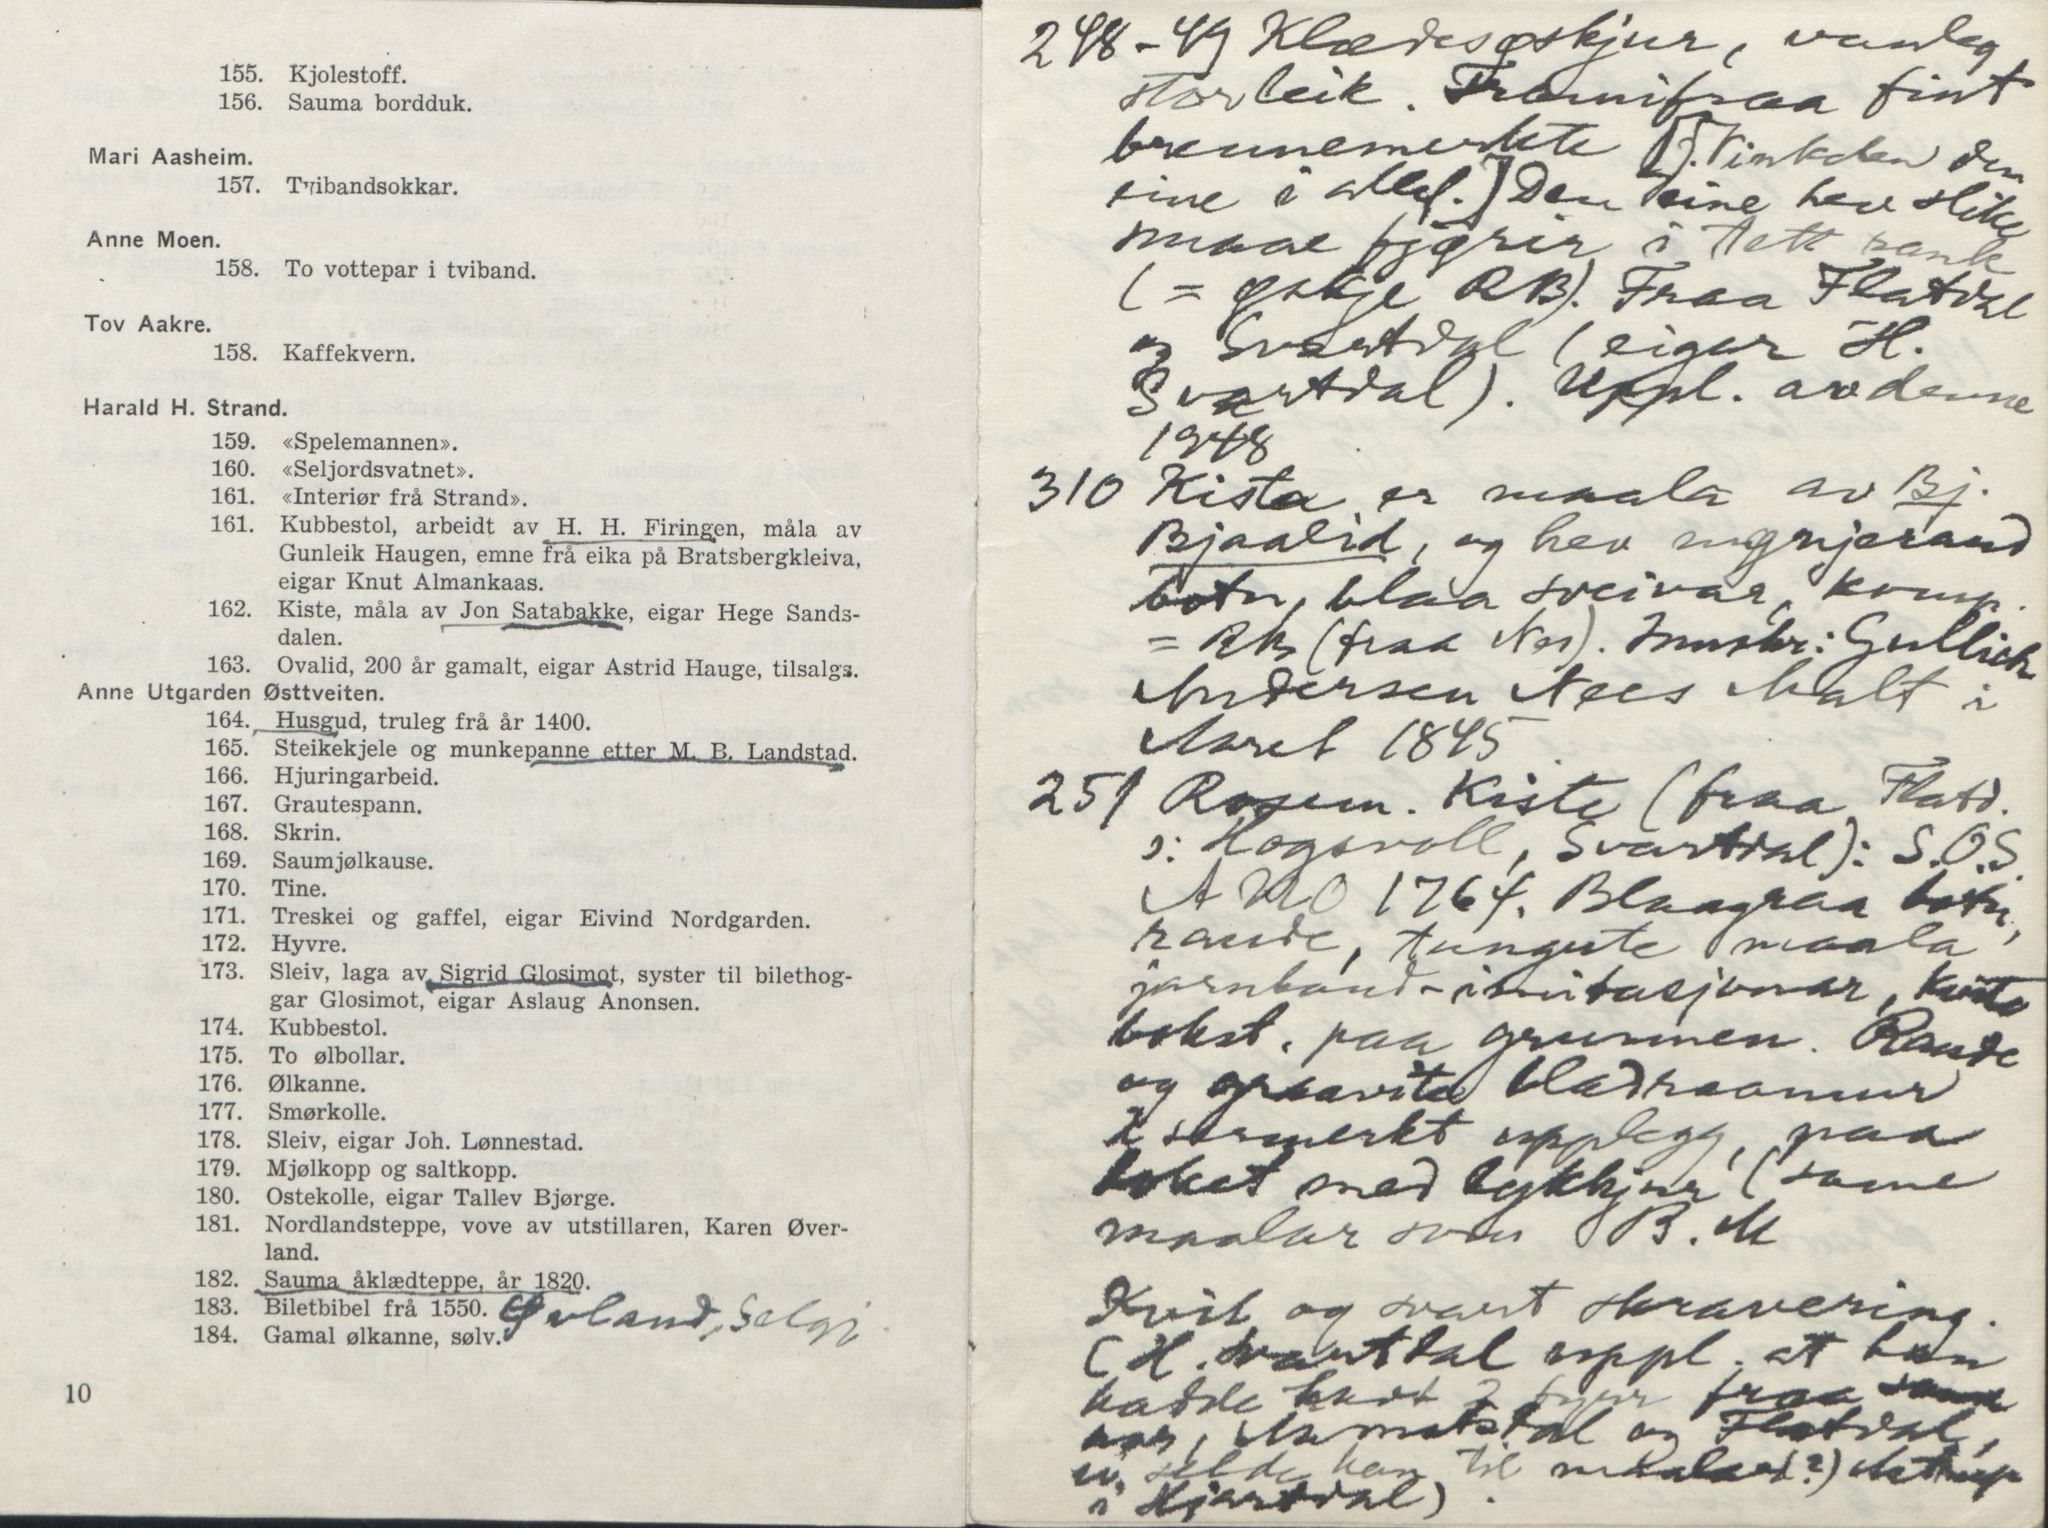 155. Kjolestoff.
156. Sauma bordduk.
Mari Aasheim.
157. Tvibandsokkar.
Anne Moen.
158. To vottepar i tviband.
Tov Aakre.
158. Kaffekvern.
Harald H. Strand.
159. «Spelemannen».
160. «Seljordsvatnet».
161. «Interiør frå Strand».
161. Kubbestol, arbeidt av H. H. Firingen, måla av
Gunleik Haugen, emne frå eika på Bratsbergkleiva,
eigar Knut Almankaas.
162. Kiste, måla av Jon Satabakke, eigar Hege Sands-
dalen.
163. Ovalid, 200 år gamalt, eigar Astrid Hauge, tilsalgs.
Anne Utgarden Østtveiten.
164. Husgud, truleg frå år 1400.
165. Steikekjele og munkepanne etter M. B. Landstad.
166. Hjuringarbeid.
167. Grautespann.
168. Skrin.
169. Saumjølkause.
170. Tine.
171. Treskei og gaffel, eigar Eivind Nordgarden.
172. Hyvre.
173. Sleiv, laga av Sigrid Glosimot, syster til bilethog-
gar Glosimot, eigar Aslaug Anonsen.
174. Kubbestol.
175. To ølbollar.
176. Ølkanne.
177. Smørkolle.
178. Sleiv, eigar Joh. Lønnestad.
179. Mjølkopp og saltkopp.
180. Ostekolle, eigar Tallev Bjørge.
181. Nordlandsteppe, vove av utstillaren, Karen Øver-
land.
182. Sauma åklædteppe, år 1820.
183. Biletbibel frå 1550. Øvland, Selgj
184. Gamal ølkanne, sølv.
10
248-49 Klædesøskjur, vanleg
storleik. Framifraa fint
brennemerkte
eine i Den eine hev slike
smaae i tett rank
(= øskje RB). Fraa Flatdal
og Svartdal (eigar H.
Svartdal). Uppl. av denne
1948
310 Kista er maala av Bj.
Bjaalid, og hev
botn, blaa sveivar, komp.
= RB (fraa Nes). Innskr: Gullich
Andersen Nees Malt i
Aaret 1845
251 Rosem. Kiste (fraa Flatd.
ɔ: Hogsvoll, Svartdal): S.O.S.
1764. Blaagraa botn,
raude, tungute maala
jarnband-imitasjonar, kvite
bokst. paa grunnen. Raude
og graavite bladraamur
sermerkt upplegg, paa
loket med lykkjur (same
maalar som B. M
Kvit og svart skravering.
(H. Svartdal uppl. at han
hadde havt 2 fraa
og Flatdal,
selde han til
i Hjartdal).